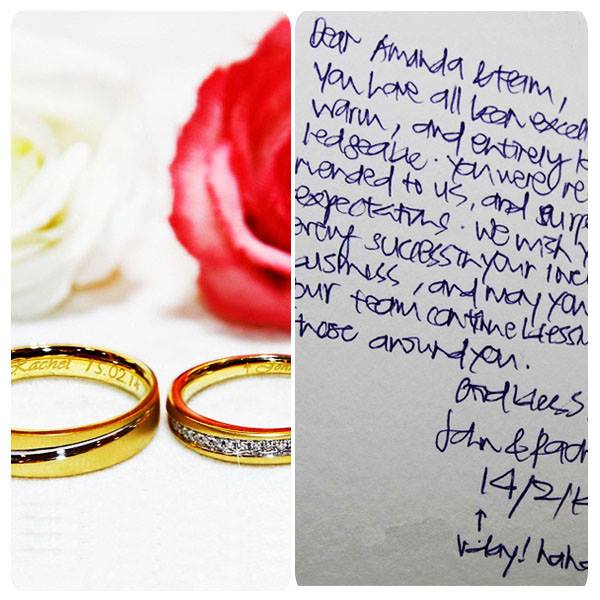 Rachel 13.02.14
Dear Amanda & team,
You have all been excel
warm, and entirely k
ledgeable. You were re
mended to us, and surp
expectations. We wish y
ering success in your
usiness, and may you
our team continue blessi
those around you.
God bless
John & Rach
14/2/1
↑
V-day! haha